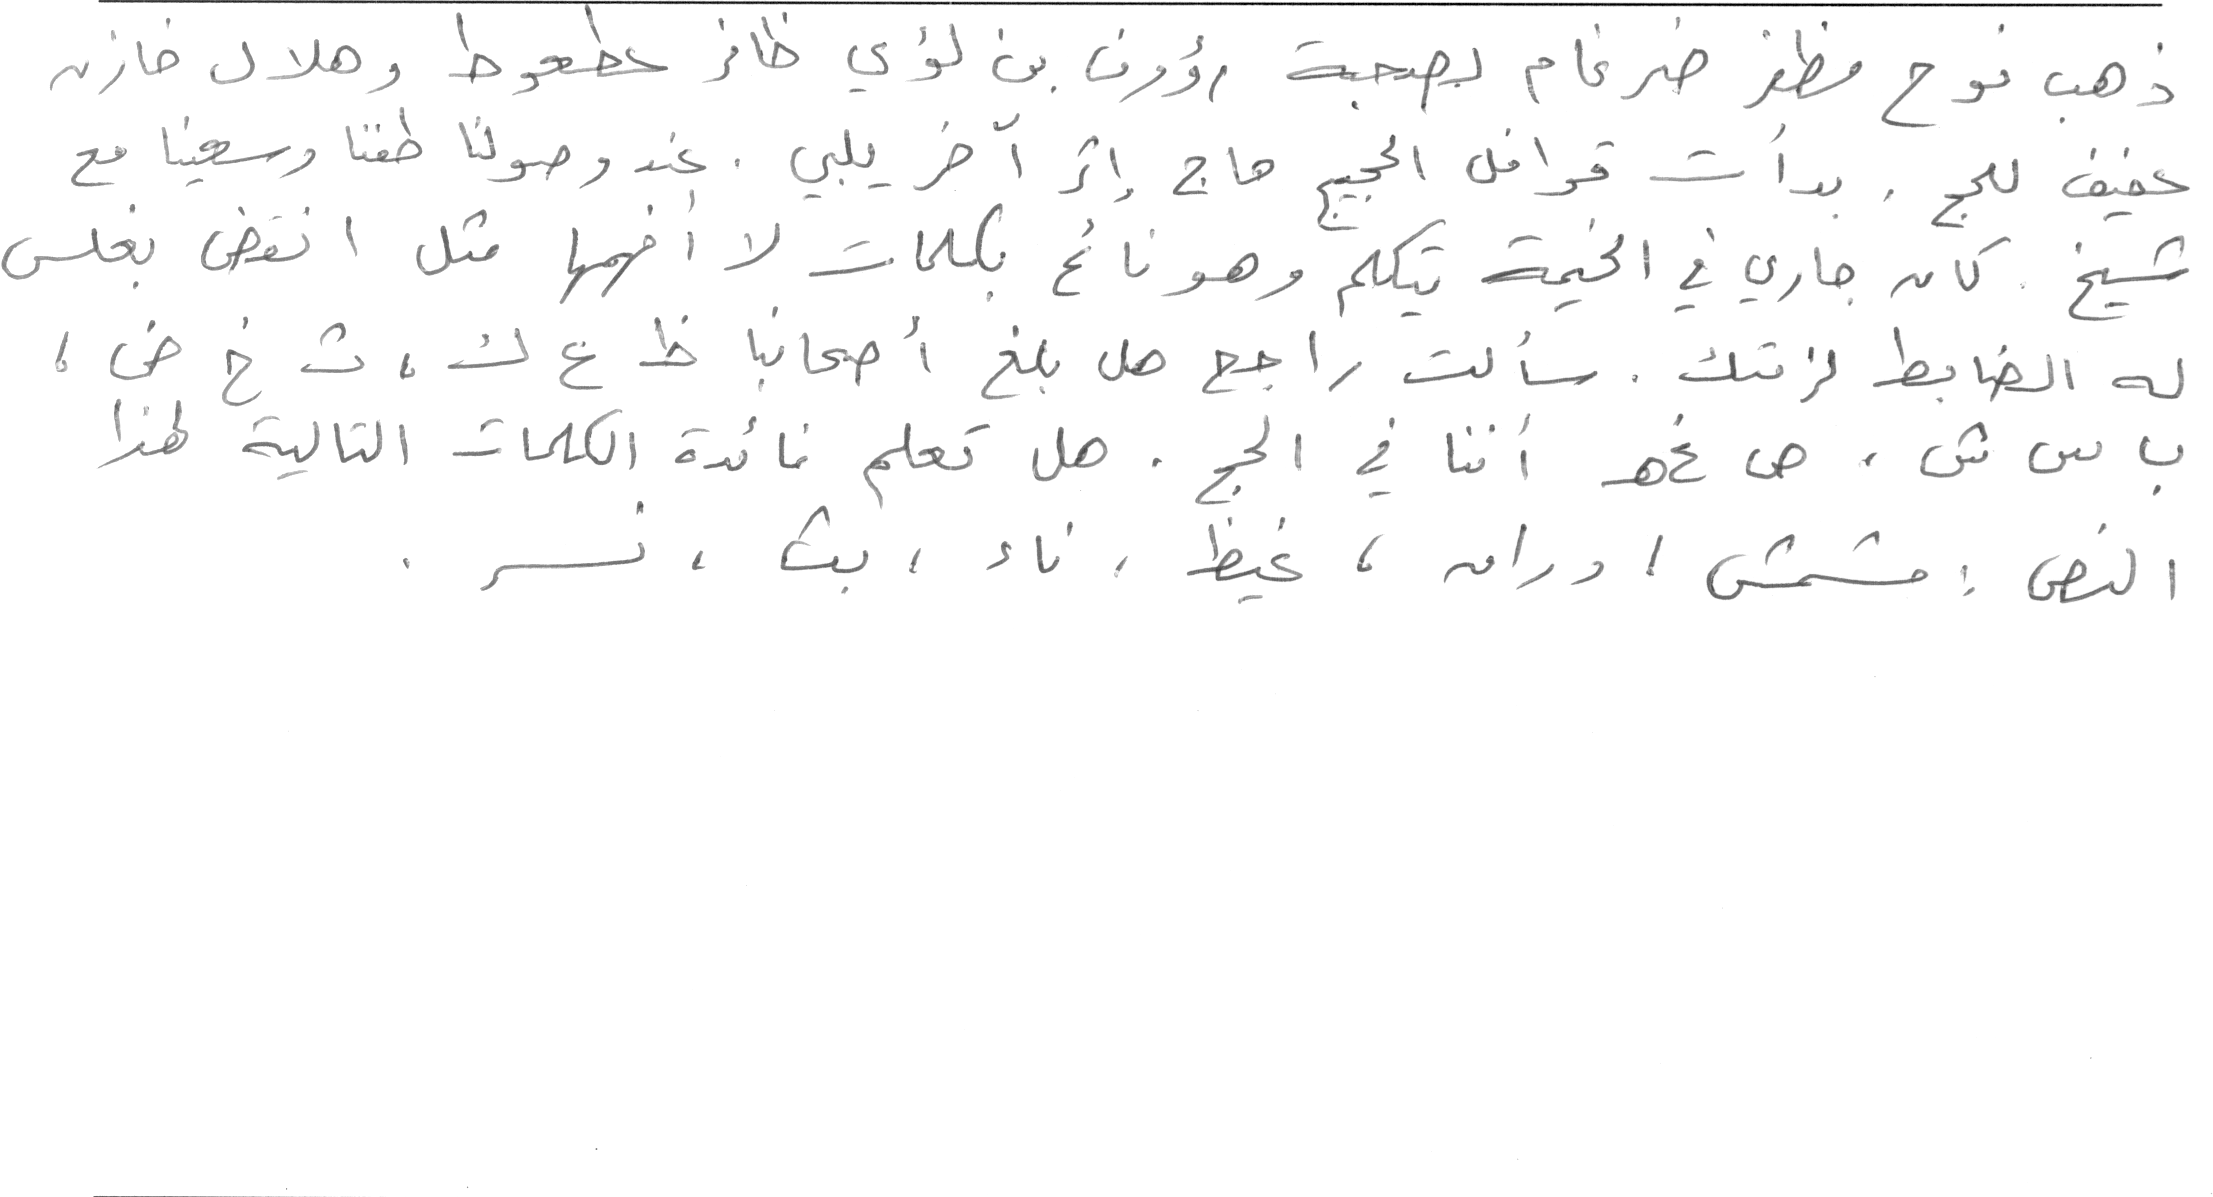 ذهب نوح مظفر ضرغام بصحبة رؤوف بن لؤي ظافر عطعوط وهلال خازن
عفيف للحج . بدأت قوافل الحجيج حاج إثر آخر يلبي . عند وصولنا طفنا وسعينا مع
شيخ . كان جاري في الخيمة يتكلم وهو نائم بكلمات لا أفهمها مثل انقض بغلس
له الضابط لزفتك . سألت راجح هل بلغ أصحابنا ظ ع ك ، ث خ ض ،
ب س ش ، ص غ هـ أننا في الحج . هل تعلم فائدة الكلمات التالية لهذا
النص : مشمش ، دران ، غيظ ، ناء ، بث ، نسر .